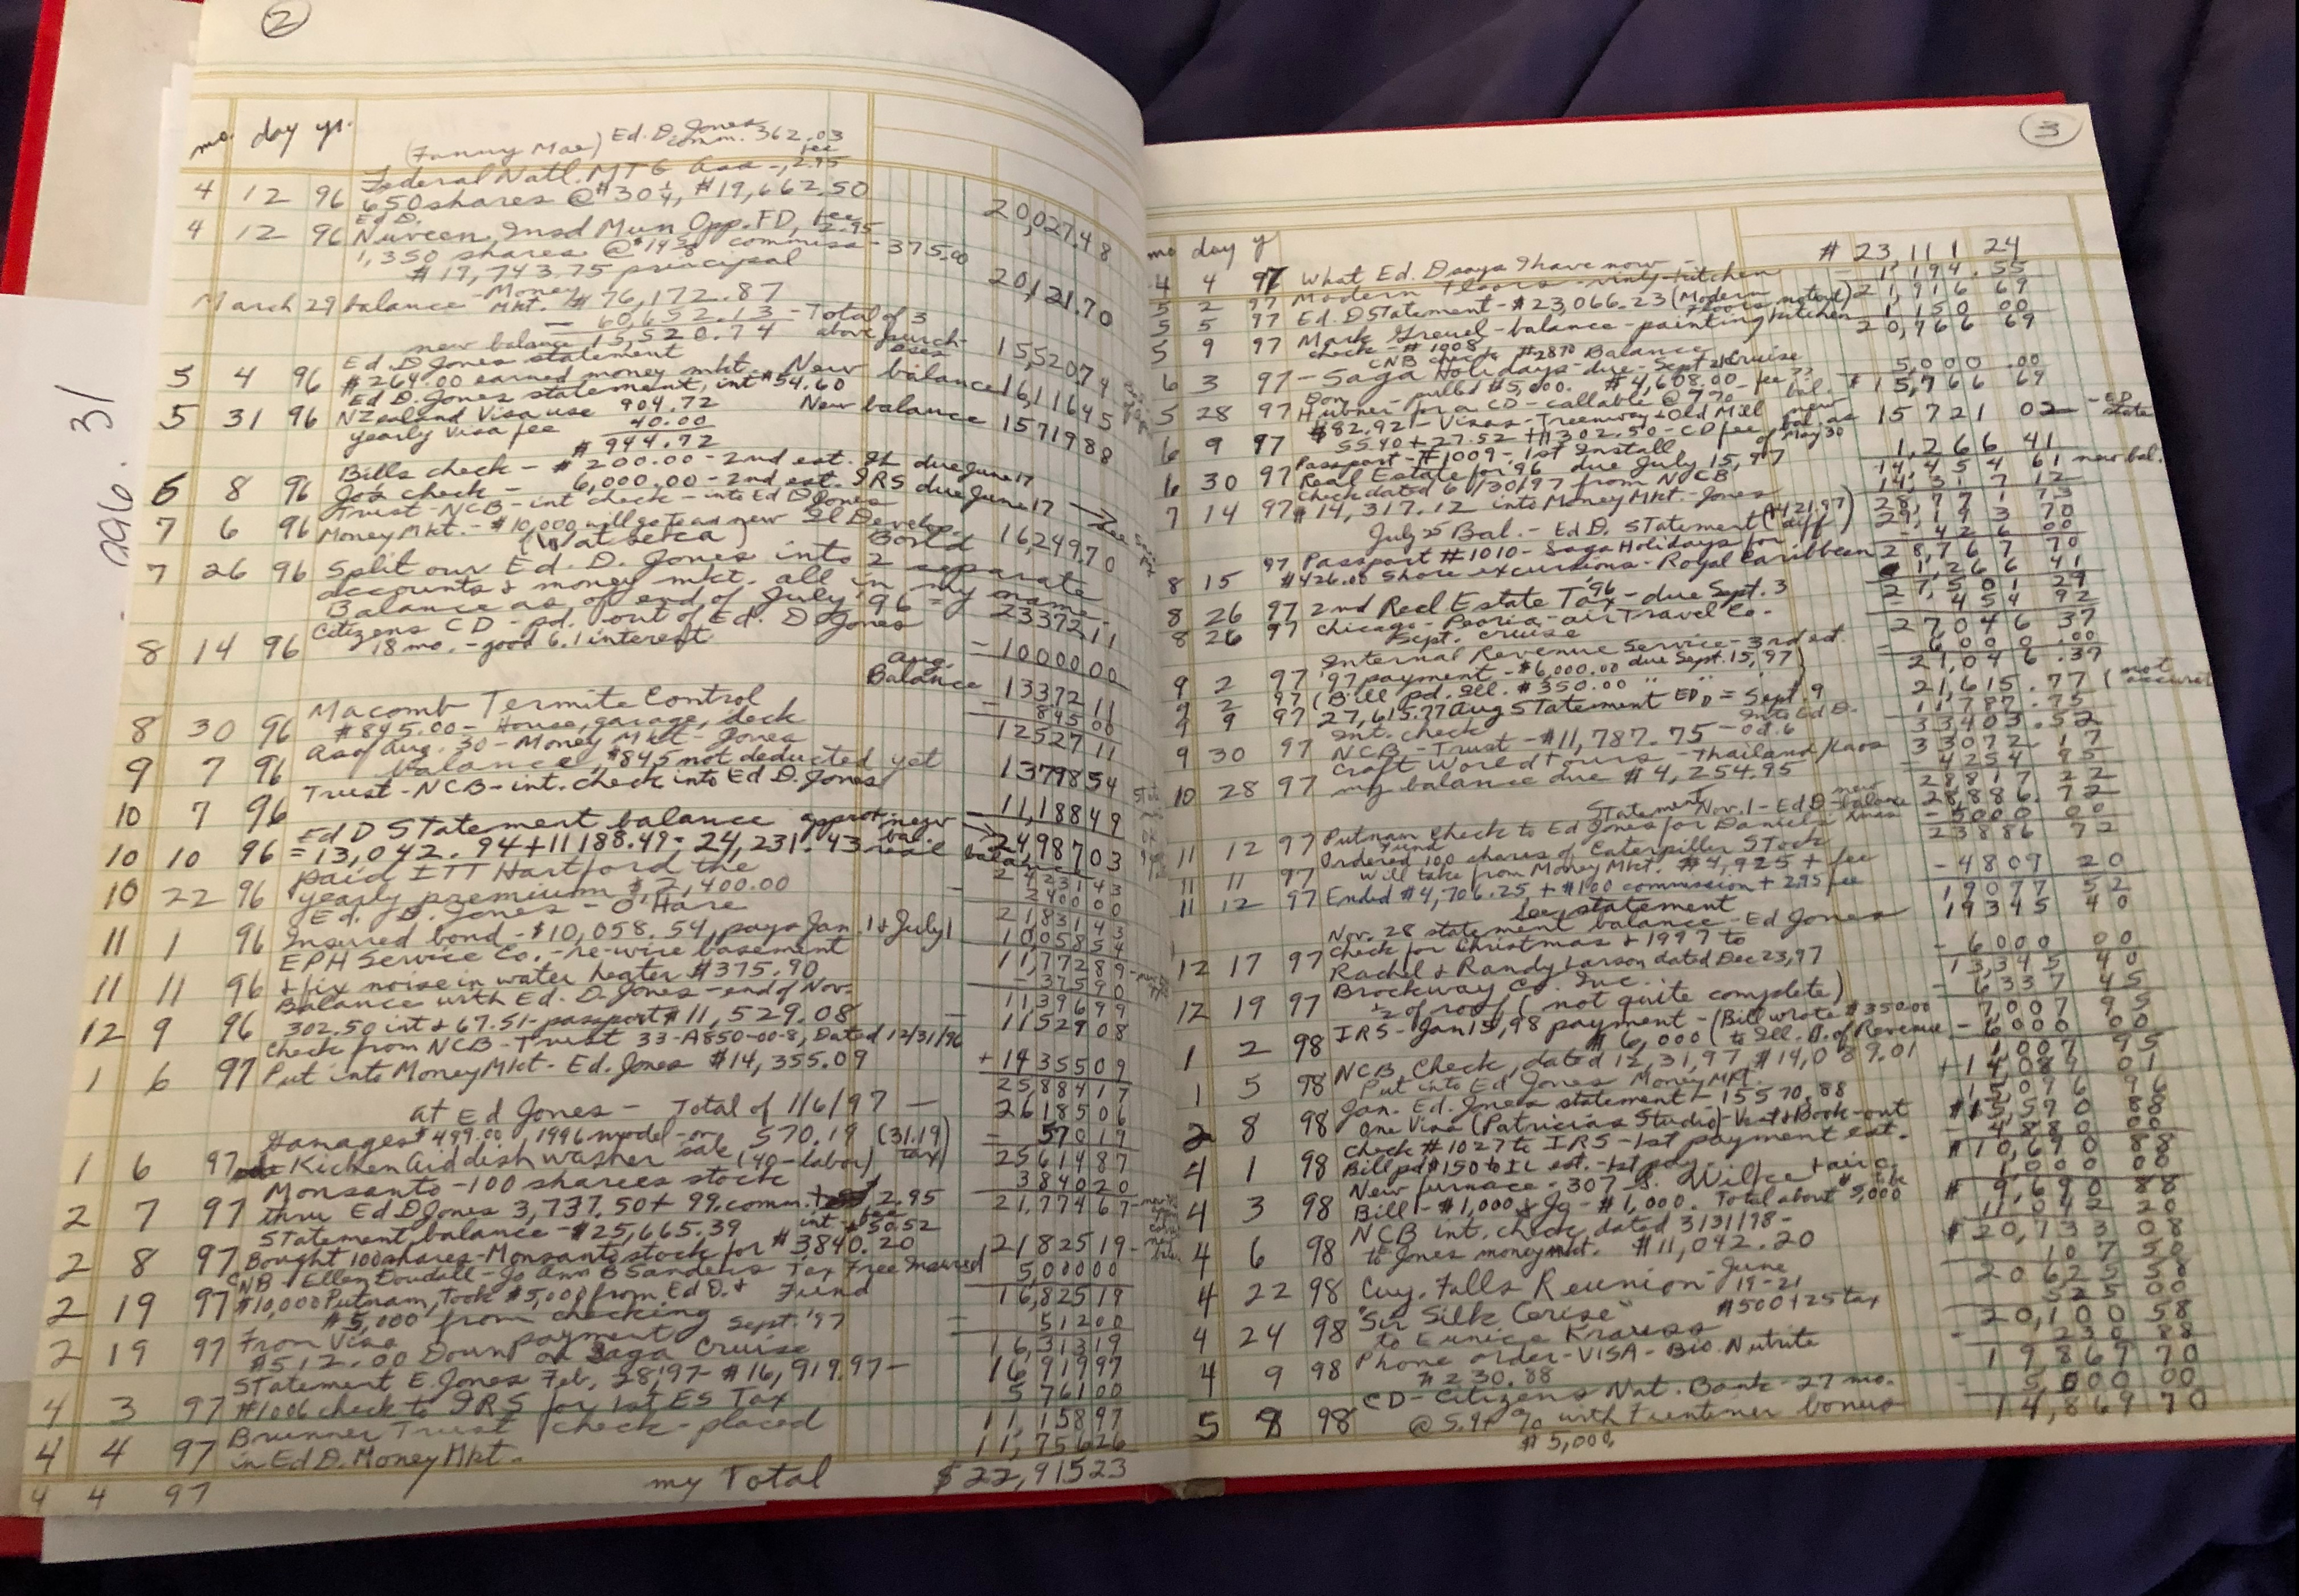 2
mo. day yr.
(Fanny Mae) Ed. D. Jones
Comm. 362.03
4 12 96 Federal Natl. MTG Assn - fee 2.95
650 shares @ $30¼, $19,662.50 20,027.48
Ed D.
4 12 96 Nuveen Insd Mun Opp. FD, fee 2.95
1,350 shares @ $14⅝ commiss - 375.00
$19,743.75 principal 20,121.70
March 29 balance - Money Mkt. $76,172.87
- 60,652.13 - Total of 3
new balance 15,520.74 above purchases 15,520 74
Ed D Jones statement
5 4 96 $264.00 earned money mkt. New balance 16,116 45
Ed D. Jones statement, int $54.60
5 31 96 NZealand Visa use 904.72 New balance 15719 88
yearly Visa fee 40.00
$944.72
Bills check - $200.00 - 2nd est. IL due June 17
6 8 96 Jos check - 6,000.00 - 2nd est. IRS due June 17
Trust - NCB - int check - into Ed D Jones
7 6 96 Money Mkt. - $10,000 will go to a new Il Develop. Bond 16249.70
7 26 96 Split our Ed. D. Jones into 2 separate
accounts & money mkt. all in my name -
Balance as of end of July '96 = 23372 11
Citizens CD - pd. out of Ed. D Jones
8 14 96 18 mo. - good 6.1 interest = 10000 00
Aug. Balance 13372 11
Macomb Termite Control
8 30 96 $845.00 - House, garage, deck - 845 00
12527 11
As of Aug. 30 - Money Mkt - Jones
9 7 96 balance, $845 not deducted yet 13798 54
Trust - NCB - int. check into Ed D. Jones
10 7 96 11,188 49
Ed D Statement balance approx. new bal. 24987 03
10 10 96 = 13,042.94 + 11188.49 = 24,231.43 real balance 24231 43
paid ITT Hartford the
10 22 96 yearly premium $2,400.00 - 2400 00
Ed. D. Jones - O'Hare 21831 43
11 1 96 Insured bond - $10,058.54, pays Jan. 1 & July 1 10058 54
EPH Service Co. - re-wire basement 11,772 89
11 11 96 + fix noise in water heater $375.90 - 375 90
Balance with Ed. D. Jones - end of Nov. 11396 99
12 9 96 302.50 int & 67.51 - passport $11,529.08 11529 08
Check from NCB - Trust 33-A850-00-8, Dated 12/31/96
1 6 97 Put into Money Mkt - Ed. Jones $14,355.09 + 14355 09
25884 17
at Ed Jones - Total of 1/6/97 - 26185 06
$499.00, 1996 model - on sale 570.19 (31.19) tax = 570 19
1 6 97 KitchenAid dish washer (40 - labor) 25614 87
Monsanto - 100 sharees stock 3840 20
2 7 97 thru Ed D Jones 3,737.50 + 99. comm. 2.95 21,774 67
Statement balance - $25,665.39 int - $50.52
2 8 97 Bought 100 shares - Monsanto stock for $3840.20 21825 19
CNB - Ellen Dowdall - Jo Ann B Sanders Tax Free Insured 5,000 00
2 19 97 $10,000 Putnam, Took $5,000 from Ed D. & Fund 16,825 19
$5,000 from checking
From Visa payment Sept. '97 = 512 00
2 19 97 $512.00 Down on Saga Cruise 16,313 19
Statement E. Jones Feb. 28, 97 - $16,919.97 - 16,919 97
4 3 97 #1006 check to IRS for 1st ES Tax 5 761 00
Brunner Trust check - placed 11,158 97
4 4 97 in Ed D. Money Mkt. 11,756 26
4 4 97 my Total $22,915 23
3
mo day y
4 4 97 What Ed. D says I have now - # 23,111 24
5 2 97 Modern Floors - vinyl - kitchen - 1 194.55
5 5 97 Ed. D Statement - $23,066.23 (Modern Floors not out) 21,916 69
5 9 97 Mark Greuel - balance - painting kitchen 1 150 00
check - #1008 20,766 69
CNB check #2870 Balance
6 3 97 - Saga Holidays - due - Sept 21 Cruise 5,000.00
Don - pulled $5,000. $4,608.00 - fee ?? $15,766 69
5 28 97 Hubner for a CD - callable @ 7% bal.
$82.92 - Visas - Treenway & Old Mill new
6 9 97 55.40 + 27.52 + $302.50 - CD fee bal. as of May 30 15 721 02
Passport - #1009 - 1st Install 1,266 41
6 30 97 Real Estate for 96 due July 15, 97 14,454 61 new bal.
Check dated 6/30/97 from NCB 14,317 12
7 14 97 $14,317.12 into Money Mkt. - Jones 28,771 73
July 25 Bal. - Ed D. Statement ($421.97 diff) 29,193 70
97 Passport #1010 - Saga Holidays for - 426 00
8 15 $426.00 Shore excursions - Royal Caribbean 28,767 70
1,266 41
8 26 97 2nd Real Estate Tax '96 - due Sept. 3 27,501 29
8 26 97 Chicago - Peoria - air Travel Co. - 454 92
Sept. cruise 27046 37
Internal Revenue Service - 3rd est. - 6000.00
9 2 97 '97 payment - $6,000.00 due Sept. 15, 97 21,046.37
9 2 97 (Bill pd. Ill. $350.00 " " " )
9 9 97 27,615.77 Aug Statement ED D = Sept 9 21,615.77 (not accurate
Int. check into Ed D. 11,787.75
9 30 97 NCB - Trust - $11,787.75 - Oct. 6 33403.52
Craft World Tours - Thailand/Laos 33072.17
10 28 97 my balance due $4,254.95 - 4254 95
28817 22
Statement Nov. 1 - Ed D - new balance 28,886.72
11 12 97 Putnam Fund Check to Ed Jones for Daniels Xmas - 5000 00
Ordered 100 shares of Caterpiller Stock 23886 72
11 11 97 will take from Money Mkt. $4,925 + fee
11 12 97 Ended $4,706.25 + $100 commission + 2.95 fee - 4809 20
See statement 19077 52
Nov. 28 statement balance - Ed Jones 19345 40
Check for Christmas & 1997 to
12 17 97 Rachel & Randy Larson dated Dec 23, 97 - 6000 00
Brockway Co. Inc. 13,345 40
12 19 97 ½ of roof (not quite complete) - 6337 45
(Bill wrote $350.00 7007 95
1 2 98 IRS - Jan 15, 98 payment - $6,000 (to Ill. D. of Revenue - 6000 00
1,007 95
1 5 98 NCB Check, dated 12, 31, 97 $14,089.01 + 14,089 01
Put into Ed Jones Money Mkt. 15,096 96
Jan. Ed. Jones statement - 15570.88 $15,570 88
2 8 98 on Visa (Patricias Studio) - Vest & Book - out
4 1 98 Check #1027 to IRS - 1st payment est. $10,690 88
Bill pd $150 to IL est. - 1st pay.
New furnace - 307 S. Wilke + air c. 1,000 00
4 3 98 Bill - $1,000 & Jg - $1,000. Total about 5,000 $9,690 88
NCB int. check dated 3/31/98 - 11,042 20
4 6 98 to Jones money mkt. $11,042.20 $20,733 08
107 50
4 22 98 Cuy. Falls Reunion - June 19-21 20625 58
"Sir Silk Cerise" $500 + 25 tax 525 00
4 24 98 to Eunice Krauss 20,100 58
Phone order - VISA - Bio. Nutrite - 230 88
4 9 98 $230.88 19,869 70
CD - Citizens Nat. Bank - 27 mo. - 5000 00
5 8 98 @ 5.9+ % with Frontener bonus 14,869 70
$5,000.